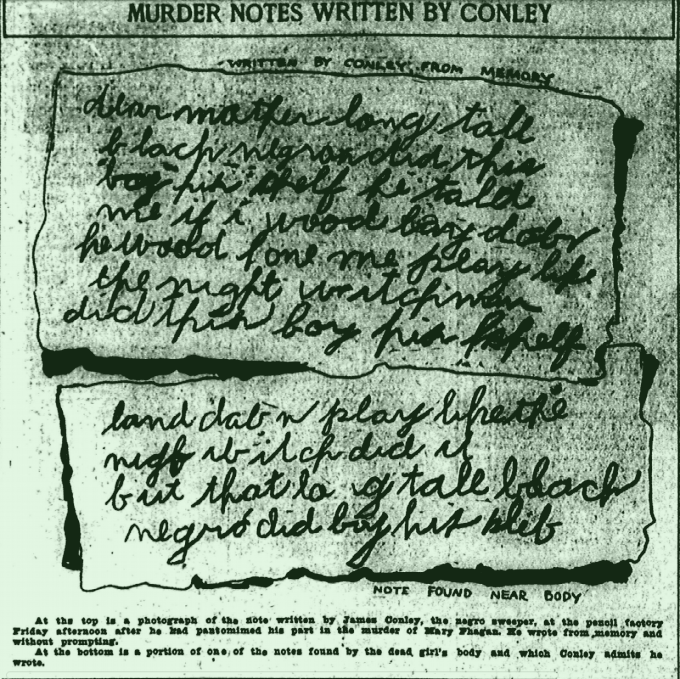 MURDER NOTES WRITTEN BY CONLEY
WRITTEN BY CONLEY FROM MEMORY
dear mather long tall
black negron did this
boy his shelf he tald
me if i wood lay dobr
he wood lone me play like
the night witchman
did this boy his shelf
land dab n play like the
night witch did it
but that long tall black
negro did boy his slef
NOTE FOUND NEAR BODY
At the top is a photograph of the note written by James Conley, the negro sweeper, at the pencil factory
Friday afternoon after he had pantomimed his part in the murder of Mary Phagan. He wrote from memory and
without prompting.
At the bottom is a portion of one of the notes found by the dead girl's body and which Conley admits he
wrote.